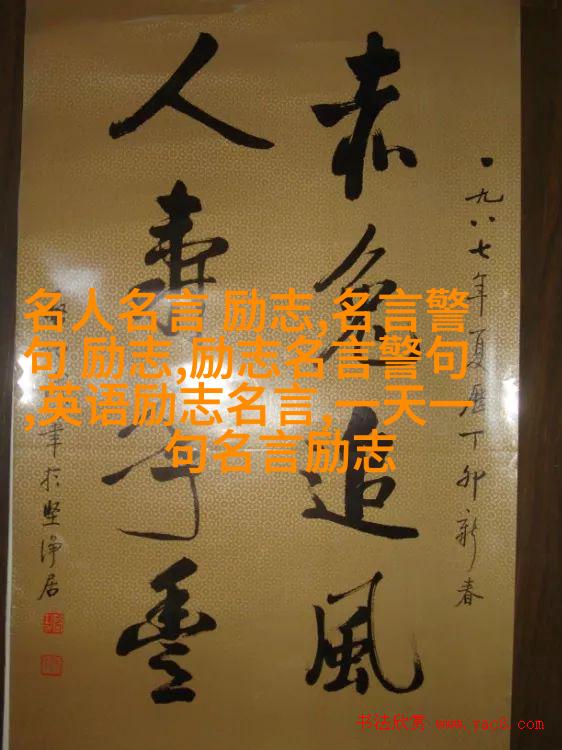 一九八七年夏历丁卯新春
赤兔追風
人寿年豊
筆於坚净居
名人名言 励志,名言警
句 励志,励志名言警句
,英语励志名言,一天一
句名言励志
书法欣赏 www.yac8.com